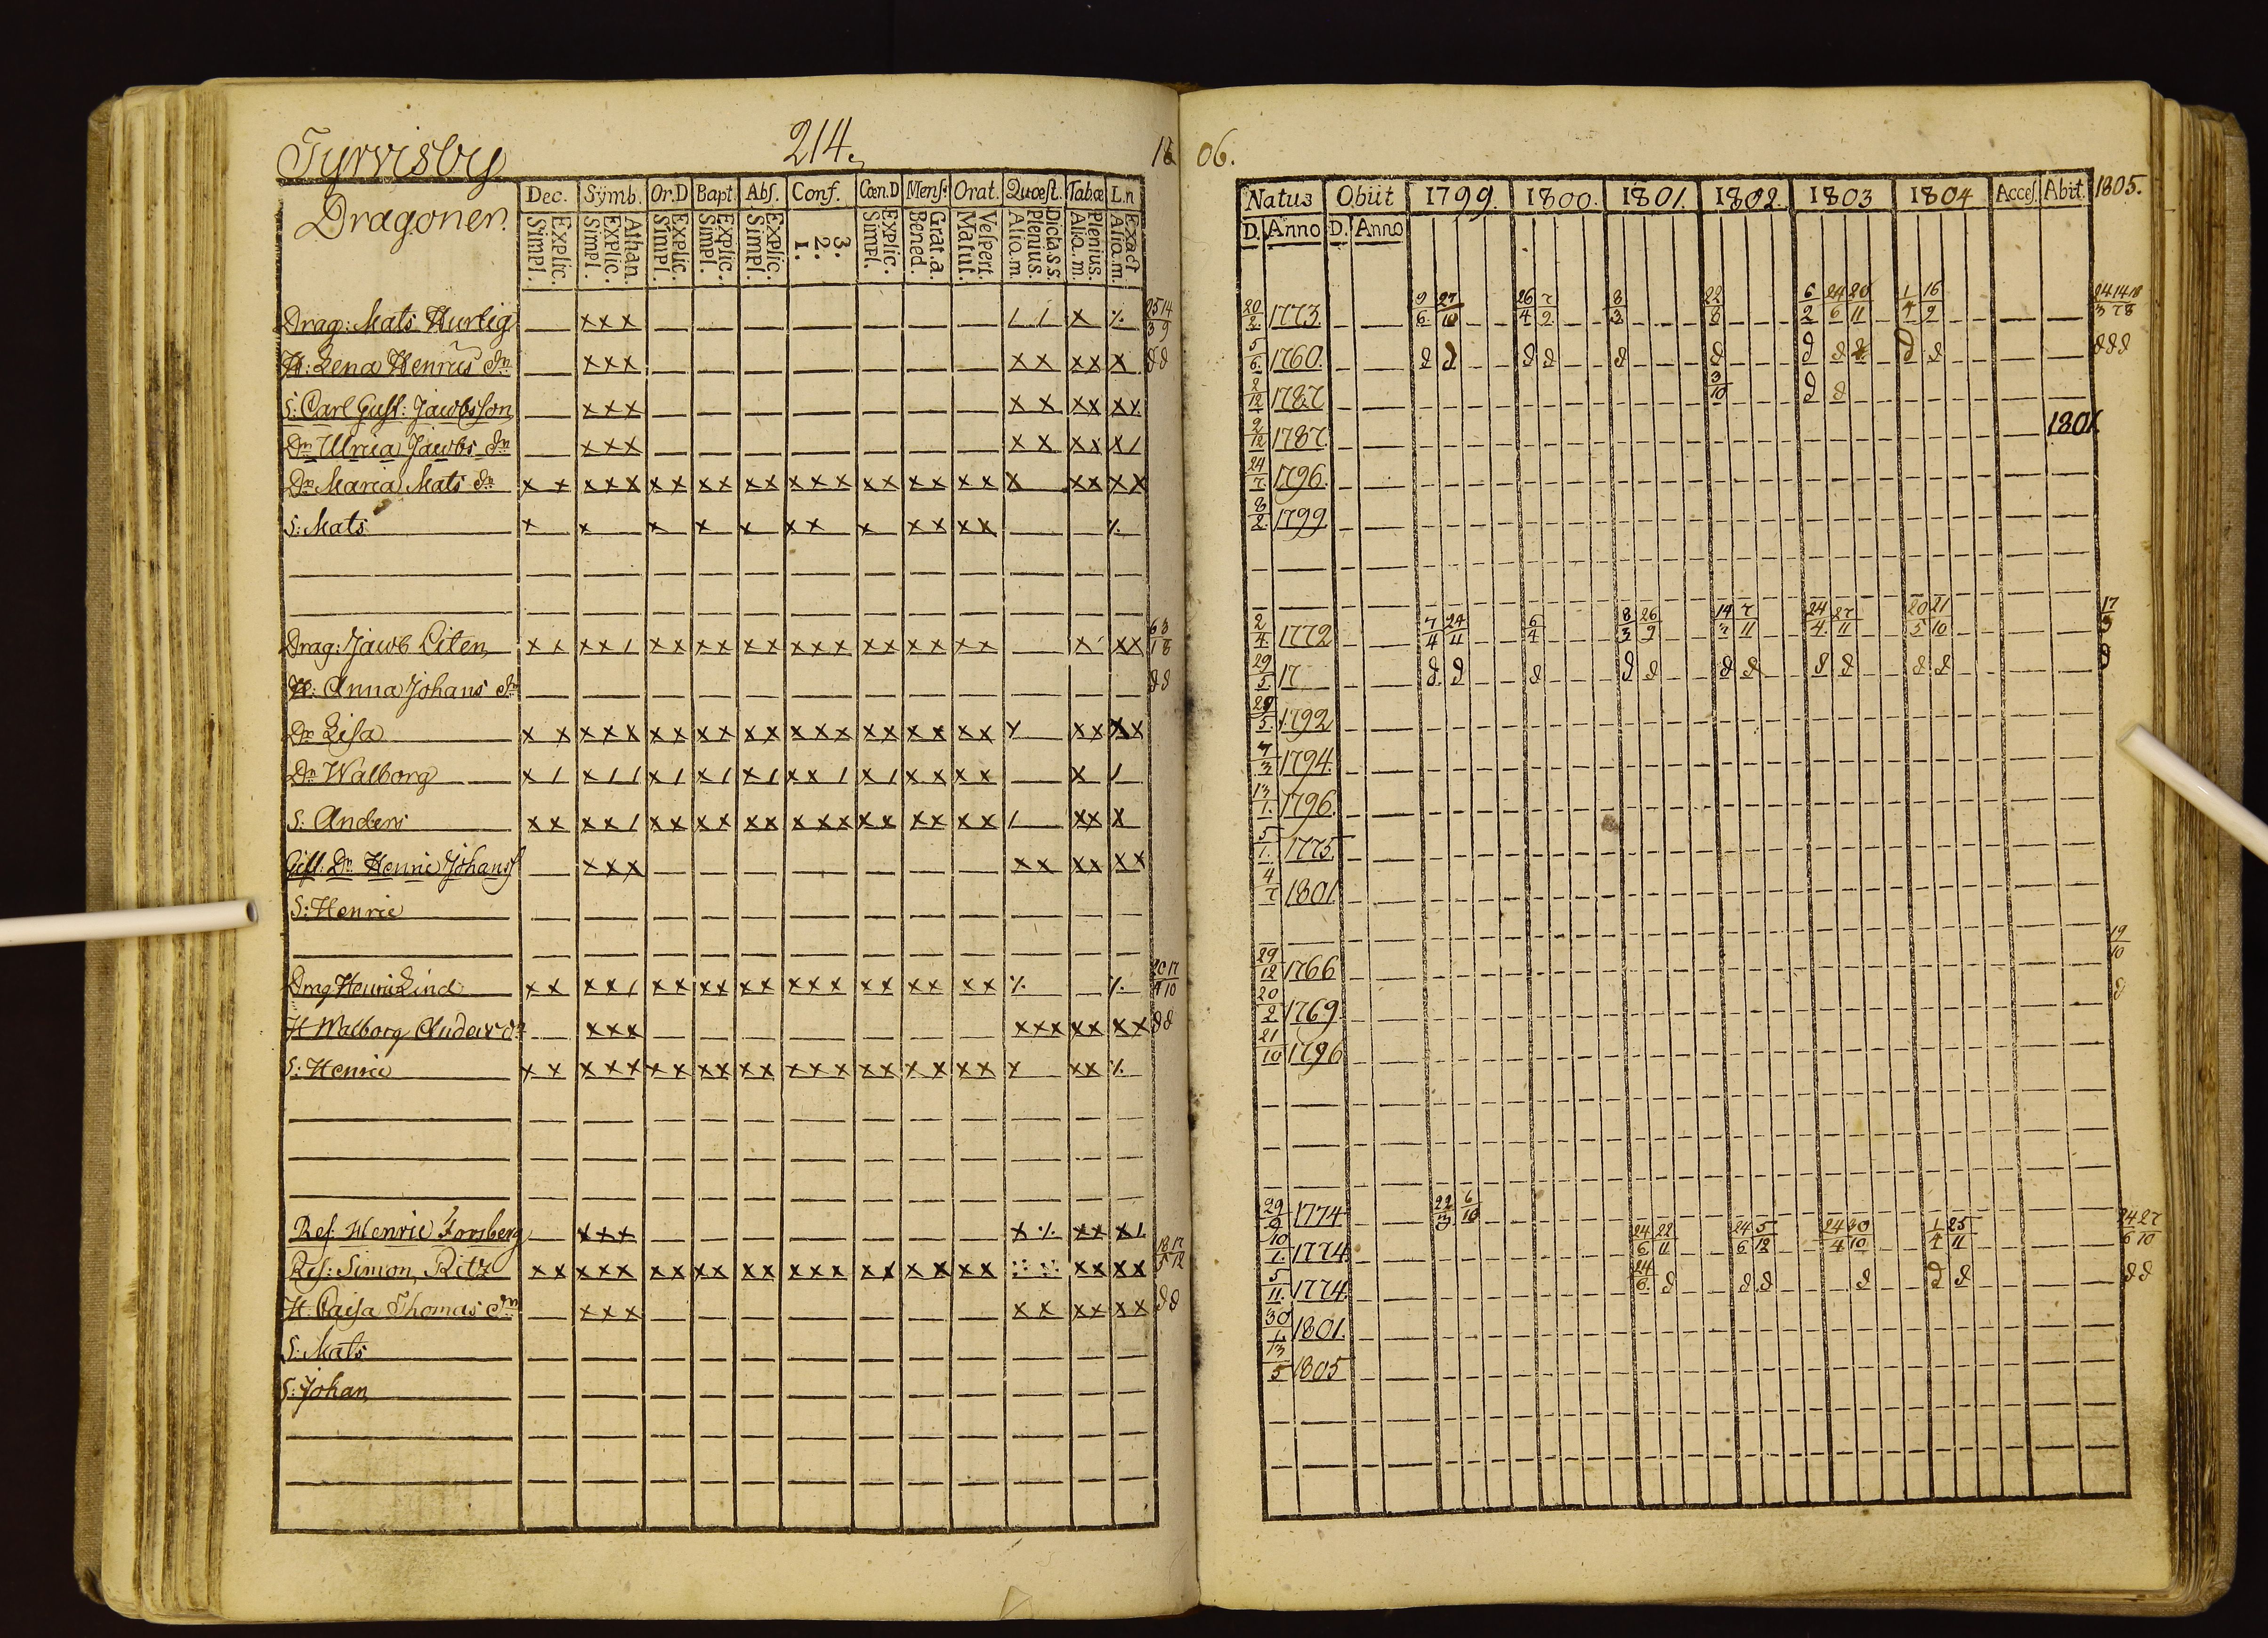 Tyrvisby 214. 18 06.
Dragoner.
Dec. Symb. Or.D Bapt. Abs. Conf. Cœn.D Mens. Orat. Quæst. Tab.œ L.n
Explic. Simpl. Athan. Explic. Simpl. Explic. Simpl. Explic. Simpl. Explic. Simpl. 3. 2. 1. Explic. Simpl. Grat.a. Bened. Vespert. Matut. Dicta.s.s. Plenius. Alio.m. Plenius. Alio.m. Exact Alio.m.
Natus Obiit 1799. 1800. 1801. 1802. 1803 1804 Acces. Abit. 1805.
D. Anno D. Anno
Drag: Mats Hurtig 20/2 1773 9/6 27/10 26/4 7/9 8/3 22/8 6/2 24/6 20/11 1/4 16/9
H: Lena Henrics dr 5/6 1760.
S: Carl Gust: Jacobsson 2/12 1787 3/10
Dr Ulrica Jacobs dr 2/12 1787 1801.
Dr Maria Mats dr 24/7 1796
S: Mats 8/2 1799
Drag: Jacob Liten 2/4 1772 7/4 24/11 6/4 8/3 26/9 14/3 7/11 24/4 27/11 20/5 21/10 17/3
H: Anna Johans dr 29/5 17
Dr Lisa 28/5 1792
Dr Walborg 7/3 1794
S: Anders 13/1 1796
Gift: Dr Henric Johans 5/1 1775
S: Henric 4/7 1801
Drag Henric Lind 29/12 1766 19/10
H Walborg Anders dr 20/2 1769
S: Henric 21/10 1796
Ref: Henric Forsberg 29/9 1774 22/3 6/10
Ref: Simon Ritz 10/1 1774 24/6 22/11 24/6 5/12 24/4 30/10 1/4 25/11 24/6 27/10
H. Caisa Thomas dr 5/11 1774 24/6
S: Mats 30/1 1801.
S: Johan 13/5 1805